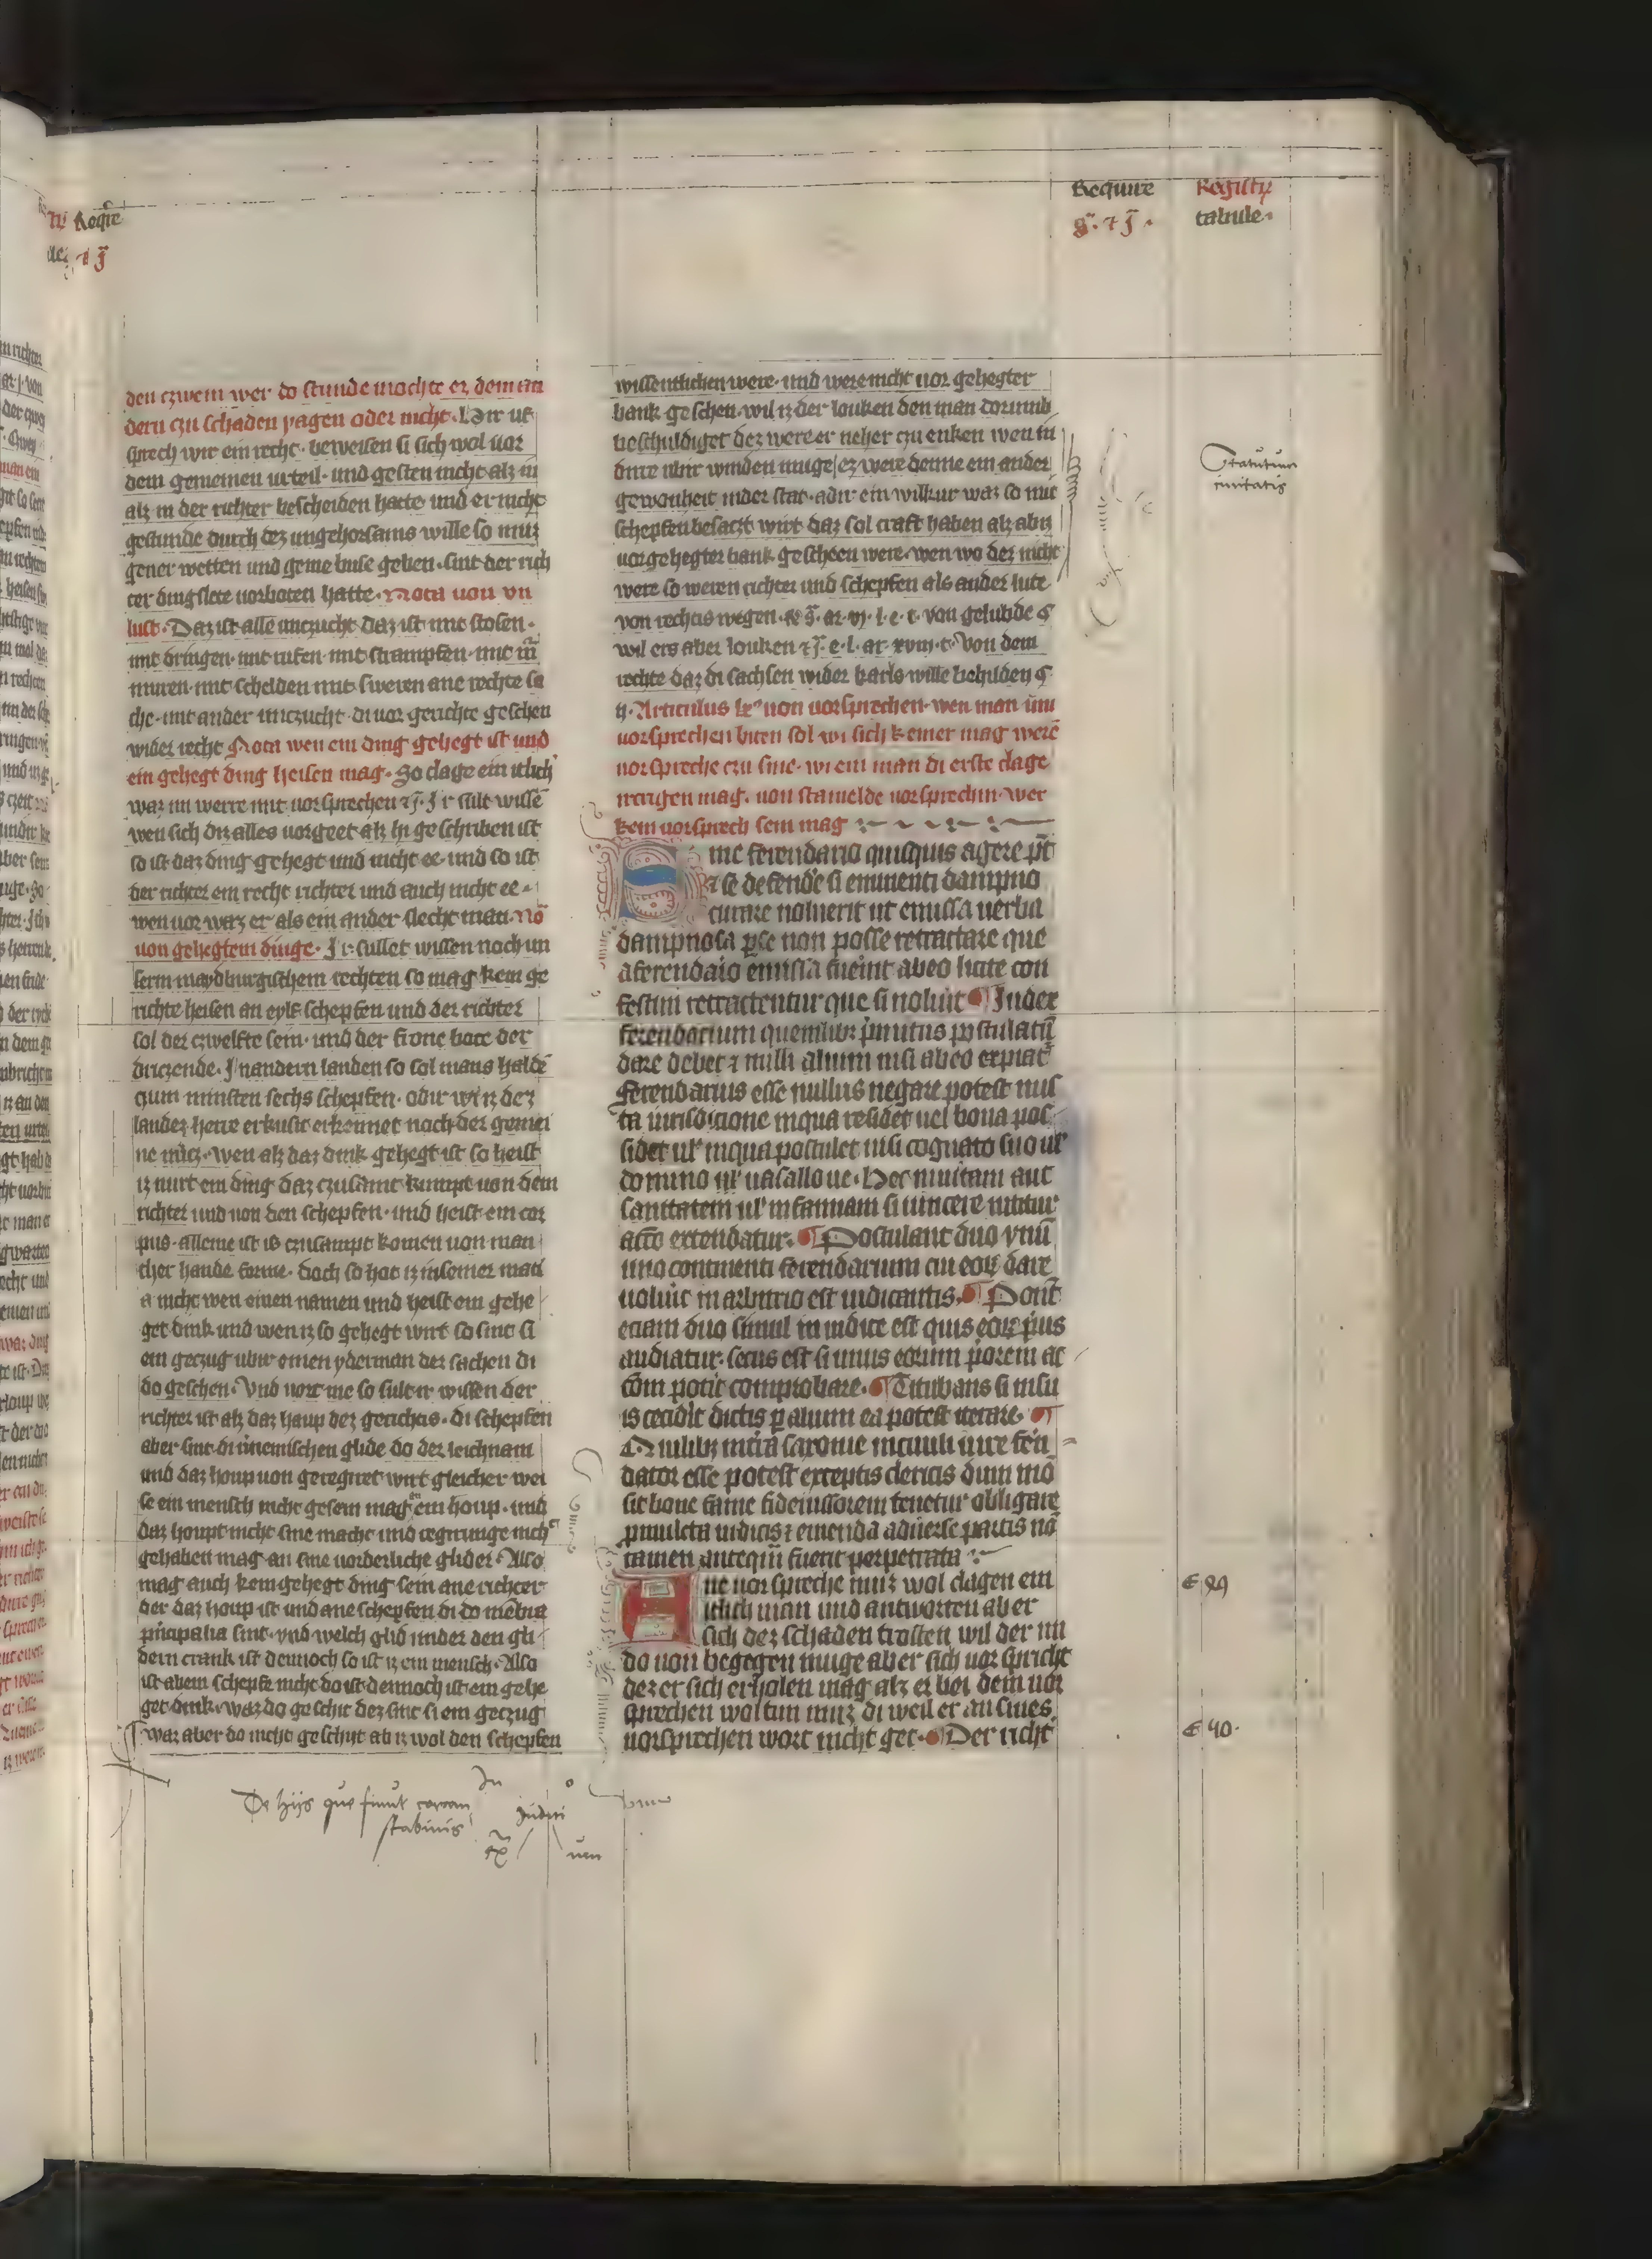 Require
Registrum
tabule
den czwem wer do stunde mochte er dem an
dern czu schaden yagen oder nicht. Hir uf
sprech wir ein recht. beweisen si sich wol uor
dem gemeinen urteil. und gesten nicht alz in
alz in der richter bescheiden hatte und er nicht
gestunde durch dez ungehorsams wille so muz
gener wetten und geme buse geben. sint der rich
ter dingslete uorboten hatte. Nota uon un
lust. Daz ist alle unczucht daz ist mit stosen.
mit dringen. mit rufen. mit strampfen. mit
muren. mit schelden mit sweren ane rechte sa
che. mit ander unczucht. di uor gerichte geschen
wider recht Nota wen ein ding gehegt ist und
ein gehegt ding heisen mag. So clage ein itlich
waz im werre mit uorsprechen Ir sult wissē
wen sich diz alles uorgeet alz hi geschriben ist
so ist daz ding gehegt und nicht ee. und so ist
der richter ein recht richter und auch nicht ee.
wen uor waz er als ein ander slecht man. Nō
uon gehegtem dinge. Ir sullet wissen noch un
serm maydburgischem rechten so mag kein ge
richte heisen an eylf schepfen und der richter
sol der czwelfte sein. und der frone bote der
driczende. In andern landen so sol mans haldē
czum minsten sechs schepfen. odir wi iz dez
landez herre erkusit erkennet noch der gemei
ne nucz. wen alz daz dink gehegt ist so heist
iz nurt ein ding daz czusamt kumpt uon dem
richter und uon den schepfen. und heist ein cor
pus. alleine ist is czusampt komen uon man
cher hande forme. doch so hot iz in seiner mati
a nicht wen einen namen und heist ein gehe
get dink und wen iz so gehegt wirt so sint si
ein geczug ubir einen yderman der sachen di
do geschen. Und uort me so sult ir wissen der
richter ist alz daz haup dez gerichtis. di schepfen
aber sint di glide do der leichnam
und daz houp uon geregnet wirt gleicher wei
se ein mensch nicht gesein mag ein houp. und
daz houpt nicht sine macht und regnunge nich
gehaben mag an sine uorderliche glider. Also
mag auch kein gehegt ding sein ane richter
der daz houp ist und ane schepfen di do mēbra
principalia sint. und welch glid under den gli
dern crank ist dennoch so ist iz ein mensch. Also
ist ab ein schepfe nicht do ist dennoch ist ein gehe
get dink. waz do geschit dez sint si ein geczug
waz aber do nicht geschit ab iz wol den schepfen
De hijs que fiunt coram
stabinis
wissentlichen were. und were nicht uor gehegter
bank geschen. wil iz der louken den man dorumb
beschuldiget dez were er neher czu enken wen in
imant ubir winden muge ez were denne ein ander
gewonheit in der stat. adir ein wilkur waz so mit
schepfen besaczt wirt daz sol craft haben alz ab iz
uor gehegter bank gescheen were. wen wo dez nicht
were so weren richter und schepfen als ander lute
von rechtis wegen. von gelubde
wil ers aber louken Von dem
rechte daz di sachsen wider karls wille behilden
Articulus lxᵘˢ uon uorsprechen. wen man um
uorsprechen biten sol wi sich keiner mag werē
uorspreche czu sine. wi ein man di erste clage
uon stamelde uorsprechin. wer
kein uorsprech sein mag
Sine ferendario quisquis agere pōt
et se defendē si eminenti dampno
curare noluerit ut emissa uerba
dampnosa per se non posse retractare que
a ferendaio emissa fueint ab eo licite con
festim retractentur que si noluit Iudex
ferendarium quemlibet primitus postulatū
dare debet et nulli alium nisi ab eo expiat
Ferendarius esse nullus negare potest nus
ta iurisdicione in qua residet uel bona pos
sidet ul' in qua postulet nisi cognato suo ul'
domino ul' uasallo ue. Hoc in uitam aut
sanitatem ul' infamiam si uincere nititur
actō extendatur. Postulant duo vnū
uno continenti ferendarium cui eoꝝ dare
uoluit in arbitrio est iudicantis. Ponit
etiam duo simul in iudice est quis eoꝝ prius
audiatur. secus est si unus eorum priorem ac
com potit comprobare. Titubans si in su
is cecidit dictis per alium ea potest iterare.
Quilibꝫ intra saxonie in cauli iure fen
dator esse potest exceptis clericis dum mō
sit bone fame fideiussorem tenetur obligare
pro mulcta iudicis et emenda aduerse partis nō
tamen antequā fuerit perpetrata
Ane uorspreche muz wol clagen ein
itlich man und antworten ab er
sich dez schaden trosten wil der im
do uon begegen muge ab er sich uorspricht
dez er sich erholen mag alz er bei dem uor
sprechen wol tun muz di weil er an sines
uorsprechen wort nicht get. Der richt
Statutum
ciuitatis
40